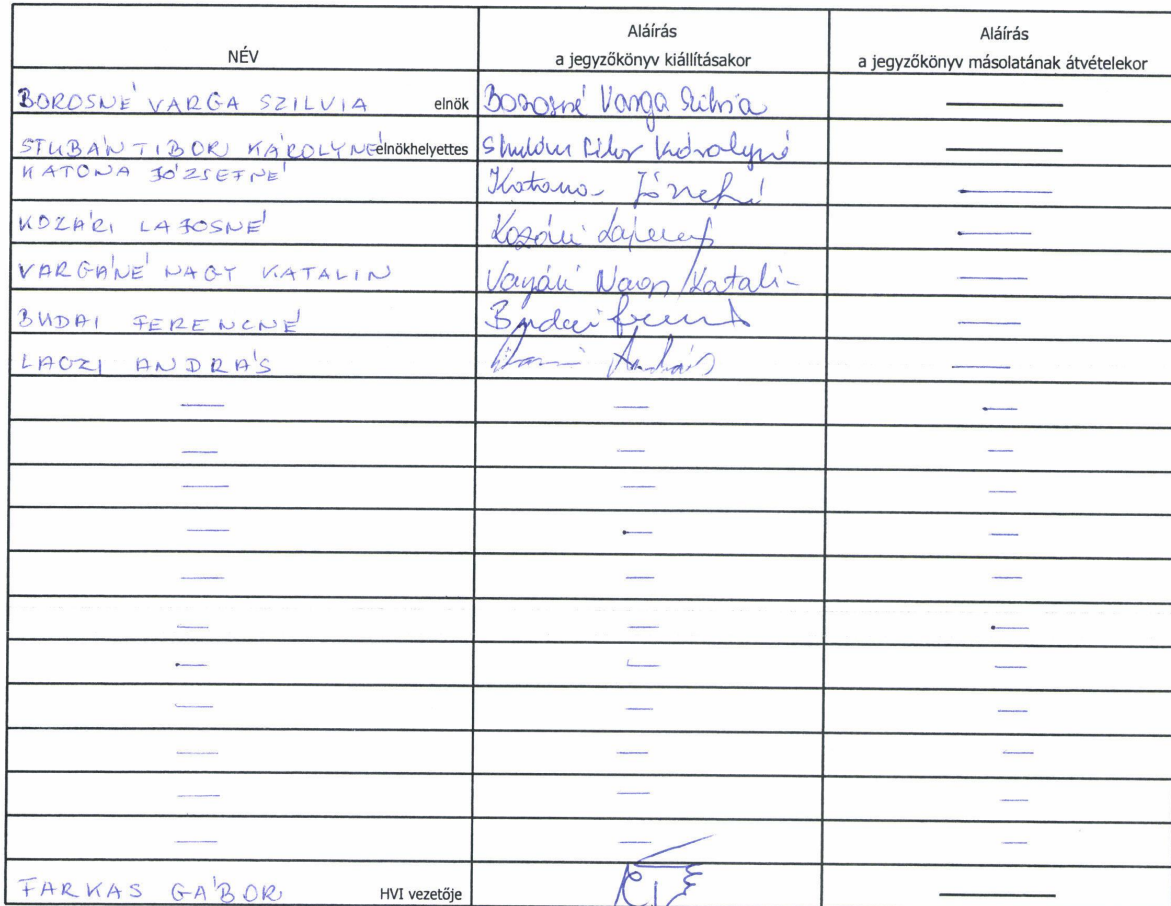 NÉV
Aláírás
a jegyzőkönyv kiállításakor
Aláírás
a jegyzőkönyv másolatának átvételekor
BOROSNÉ VARGA SZILVIA elnök Borosné Varga Szilvia
STUBÁN TIBOR KÁROLYNÉ elnökhelyettes Stubán Tibor Károlyné
KATONA JÓZSEFNÉ Katona Józsefné
KOZÁRI LAJOSNÉ Kozári Lajosné
VARGÁNÉ NAGY KATALIN Vargáné Nagy Katalin
BUDAI FERENCNÉ Budai Ferencné
LACZI ANDRÁS András
FARKAS GÁBOR HVI vezetője